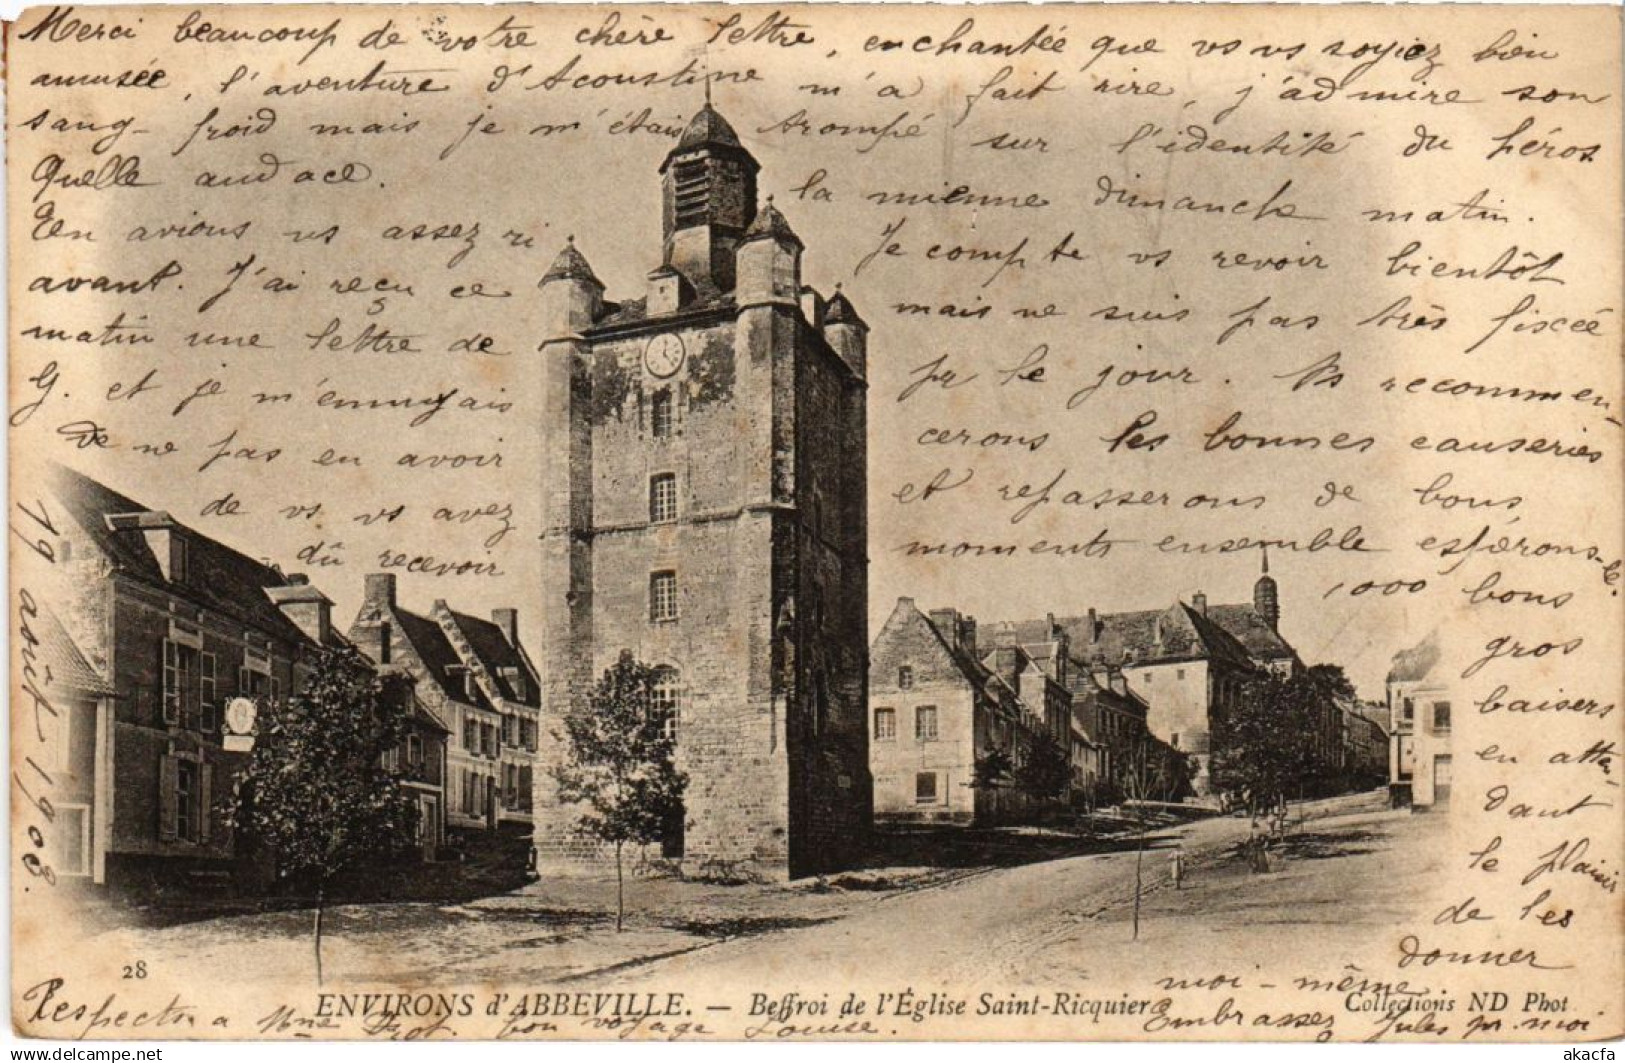 Merci beaucoup de votre chère lettre, enchantée que vs vs soyiez bien
amusée, l'aventure d'Acoustine m'a fait rire, j'admire son
sang-froid mais je m'étais trompé sur l'identité du héros
Quelle audace.
En avions vs assez ri
avant. J'ai reçu ce
matin une lettre de
G. et je m'ennuyais
de ne pas en avoir
de vs vs avez
dû recevoir
la mienne dimanche matin.
Je compte vs revoir bientôt
mais ne suis pas très fixée
pr le jour. Ns recommen-
cerons les bonnes causeries
et repasserons de bons
moments ensemble espérons-le.
1,000 bons
gros
baisers
en atten-
dant
le plaisir
de les
donner
moi-même
Embrassez Jules pr moi
Respects à Mme bon voyage Louise.
19 août 1903.
28
ENVIRONS d'ABBEVILLE. — Beffroi de l'Église Saint-Ricquier
Collections ND Phot
akacfa
www.delcampe.net